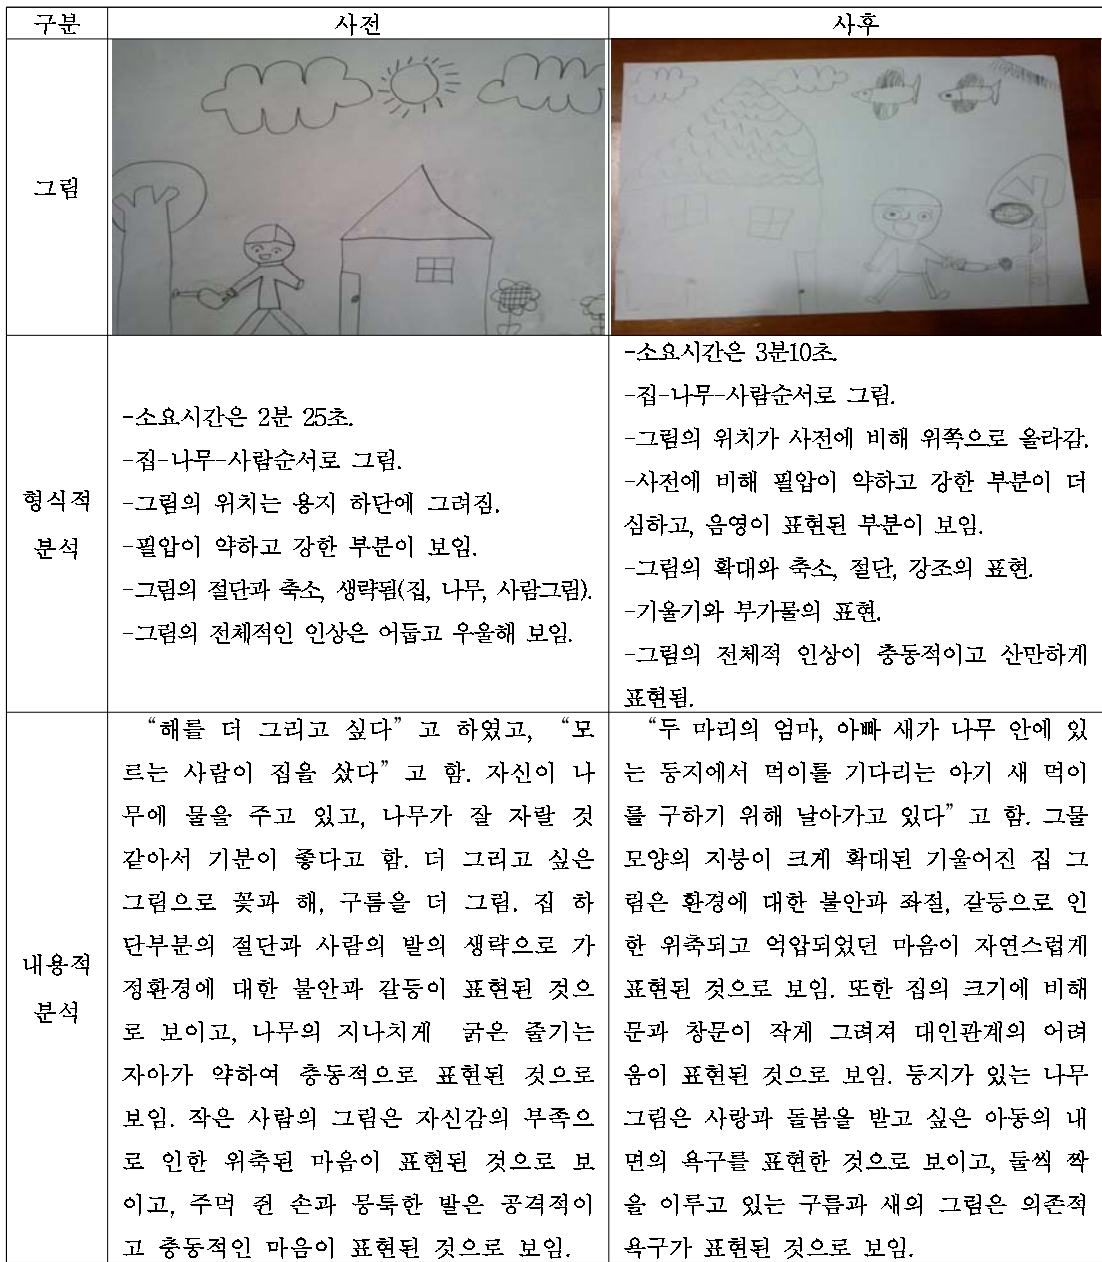 구분
사전
사후
그림
형식적
분석
-소요시간은 2분 25초.
-집-나무-사람순서로 그림.
-그림의 위치는 용지 하단에 그려짐.
-필압이 약하고 강한 부분이 보임.
-그림의 절단과 축소, 생략됨(집, 나무, 사람그림).
-그림의 전체적인 인상은 어둡고 우울해 보임.
-소요시간은 3분10초.
-집-나무-사람순서로 그림.
-그림의 위치가 사전에 비해 위쪽으로 올라감.
-사전에 비해 필압이 약하고 강한 부분이 더
심하고, 음영이 표현된 부분이 보임.
-그림의 확대와 축소, 절단, 강조의 표현.
-기울기와 부가물의 표현.
-그림의 전체적 인상이 충동적이고 산만하게
표현됨.
내용적
분석
“해를 더 그리고 싶다” 고 하였고, “모
르는 사람이 집을 샀다” 고 함. 자신이 나
무에 물을 주고 있고, 나무가 잘 자랄 것
같아서 기분이 좋다고 함. 더 그리고 싶은
그림으로 꽃과 해, 구름을 더 그림. 집 하
단부분의 절단과 사람의 발의 생략으로 가
정환경에 대한 불안과 갈등이 표현된 것으
로 보이고, 나무의 지나치게 굵은 줄기는
자아가 약하여 충동적으로 표현된 것으로
보임. 작은 사람의 그림은 자신감의 부족으
로 인한 위축된 마음이 표현된 것으로 보
이고, 주먹 쥔 손과 뭉툭한 발은 공격적이
고 충동적인 마음이 표현된 것으로 보임.
“두 마리의 엄마, 아빠 새가 나무 안에 있
는 둥지에서 먹이를 기다리는 아기 새 먹이
를 구하기 위해 날아가고 있다” 고 함. 그물
모양의 지붕이 크게 확대된 기울어진 집 그
림은 환경에 대한 불안과 좌절, 갈등으로 인
한 위축되고 억압되었던 마음이 자연스럽게
표현된 것으로 보임. 또한 집의 크기에 비해
문과 창문이 작게 그려져 대인관계의 어려
움이 표현된 것으로 보임. 둥지가 있는 나무
그림은 사랑과 돌봄을 받고 싶은 아동의 내
면의 욕구를 표현한 것으로 보이고, 둘씩 짝
을 이루고 있는 구름과 새의 그림은 의존적
욕구가 표현된 것으로 보임.